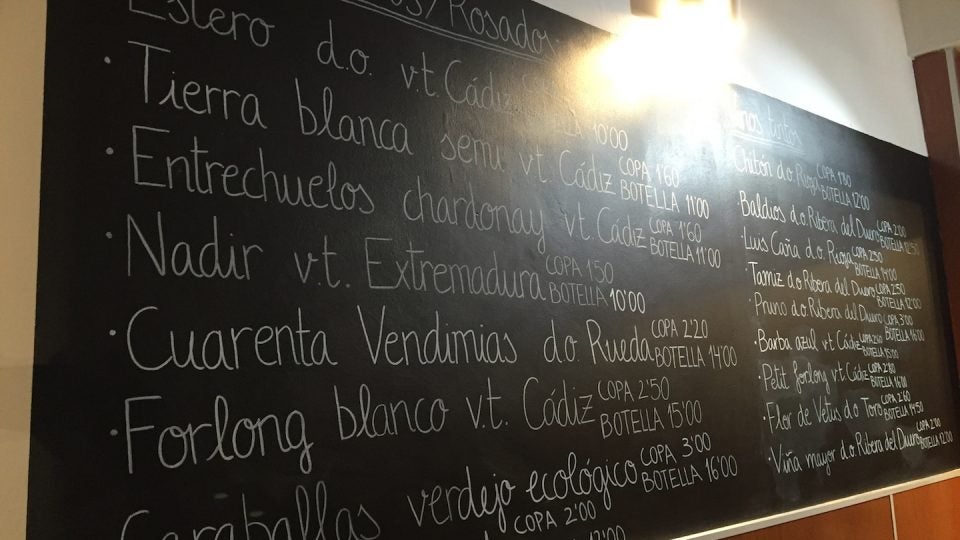 Rosados
Estero d.o. v.t. Cádiz
10'00
· Tierra blanca semi vt. Cádiz COPA 1'60 BOTELLA 11'00
· Entrechuelos chardonay v.t. Cádiz COPA 1'60 BOTELLA 11'00
· Nadir v.t. Extremadura COPA 1'50 BOTELLA 10'00
· Cuarenta Vendimias d.o. Rueda COPA 2'20 BOTELLA 14'00
· Forlong blanco v.t. Cádiz COPA 2'50 BOTELLA 15'00
verdejo ecológico COPA 3'00 BOTELLA 16'00
COPA 2'00
tintos
Chitón d.o Rioja COPA 1'80 BOTELLA 12'00
· Baldios d.o. Ribera del Duero COPA 2'00 BOTELLA
· Luis Caña d.o. Rioja COPA 2'50 BOTELLA 14'00
· Tamiz d.o Ribera del Duero COPA 2'50 BOTELLA 12'00
· Pruno d.o. Ribera del Duero COPA 3'00 BOTELLA 16'00
· Barba azul v.t. Cádiz COPA BOTELLA 15'00
· Petit forlong v.t. Cádiz COPA BOTELLA 16'00
· Flor de Vetus d.o Toro COPA 2'60 BOTELLA 14'50
· Viña mayor d.o. Ribera del Duero COPA 2'00 BOTELLA 12'00